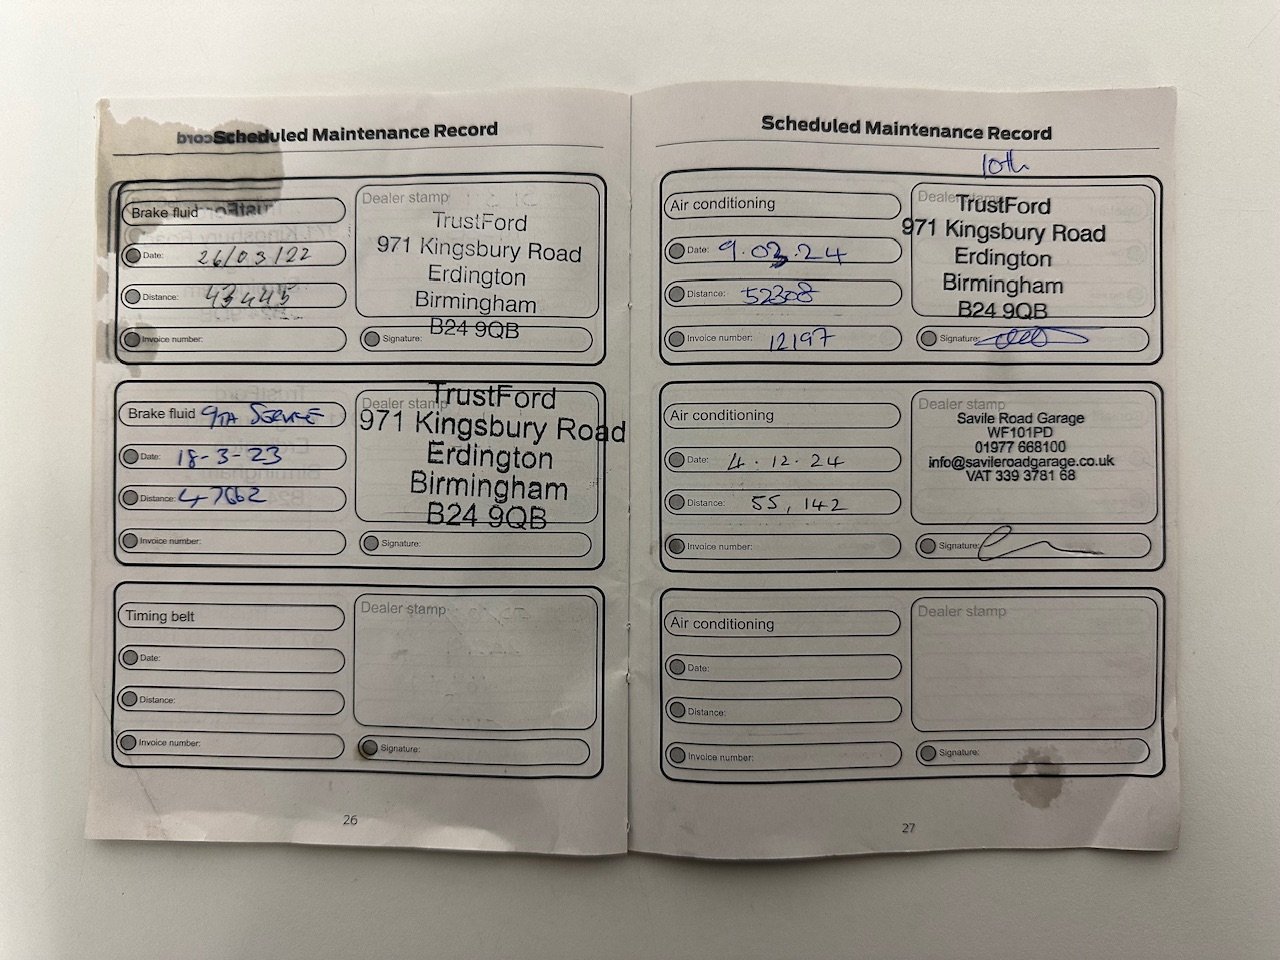 Scheduled Maintenance Record
Brake fluid
Date: 26/03/22
Distance: 43445
Invoice number:
Dealer stamp
TrustFord
971 Kingsbury Road
Erdington
Birmingham
B24 9QB
Signature:
Brake fluid 9TH SERVICE
Date: 18-3-23
Distance: 47662
Invoice number:
Dealer stamp
TrustFord
971 Kingsbury Road
Erdington
Birmingham
B24 9QB
Signature:
Timing belt
Date:
Distance:
Invoice number:
Dealer stamp
Signature:
26
Scheduled Maintenance Record
10th
Air conditioning
Date: 9.03.24
Distance: 52308
Invoice number: 12197
Dealer stamp
TrustFord
971 Kingsbury Road
Erdington
Birmingham
B24 9QB
Signature:
Air conditioning
Date: 4.12.24
Distance: 55,142
Invoice number:
Dealer stamp
Savile Road Garage
WF101PD
01977 668100
info@savileroadgarage.co.uk
VAT 339 3781 68
Signature:
Air conditioning
Date:
Distance:
Invoice number:
Dealer stamp
Signature:
27